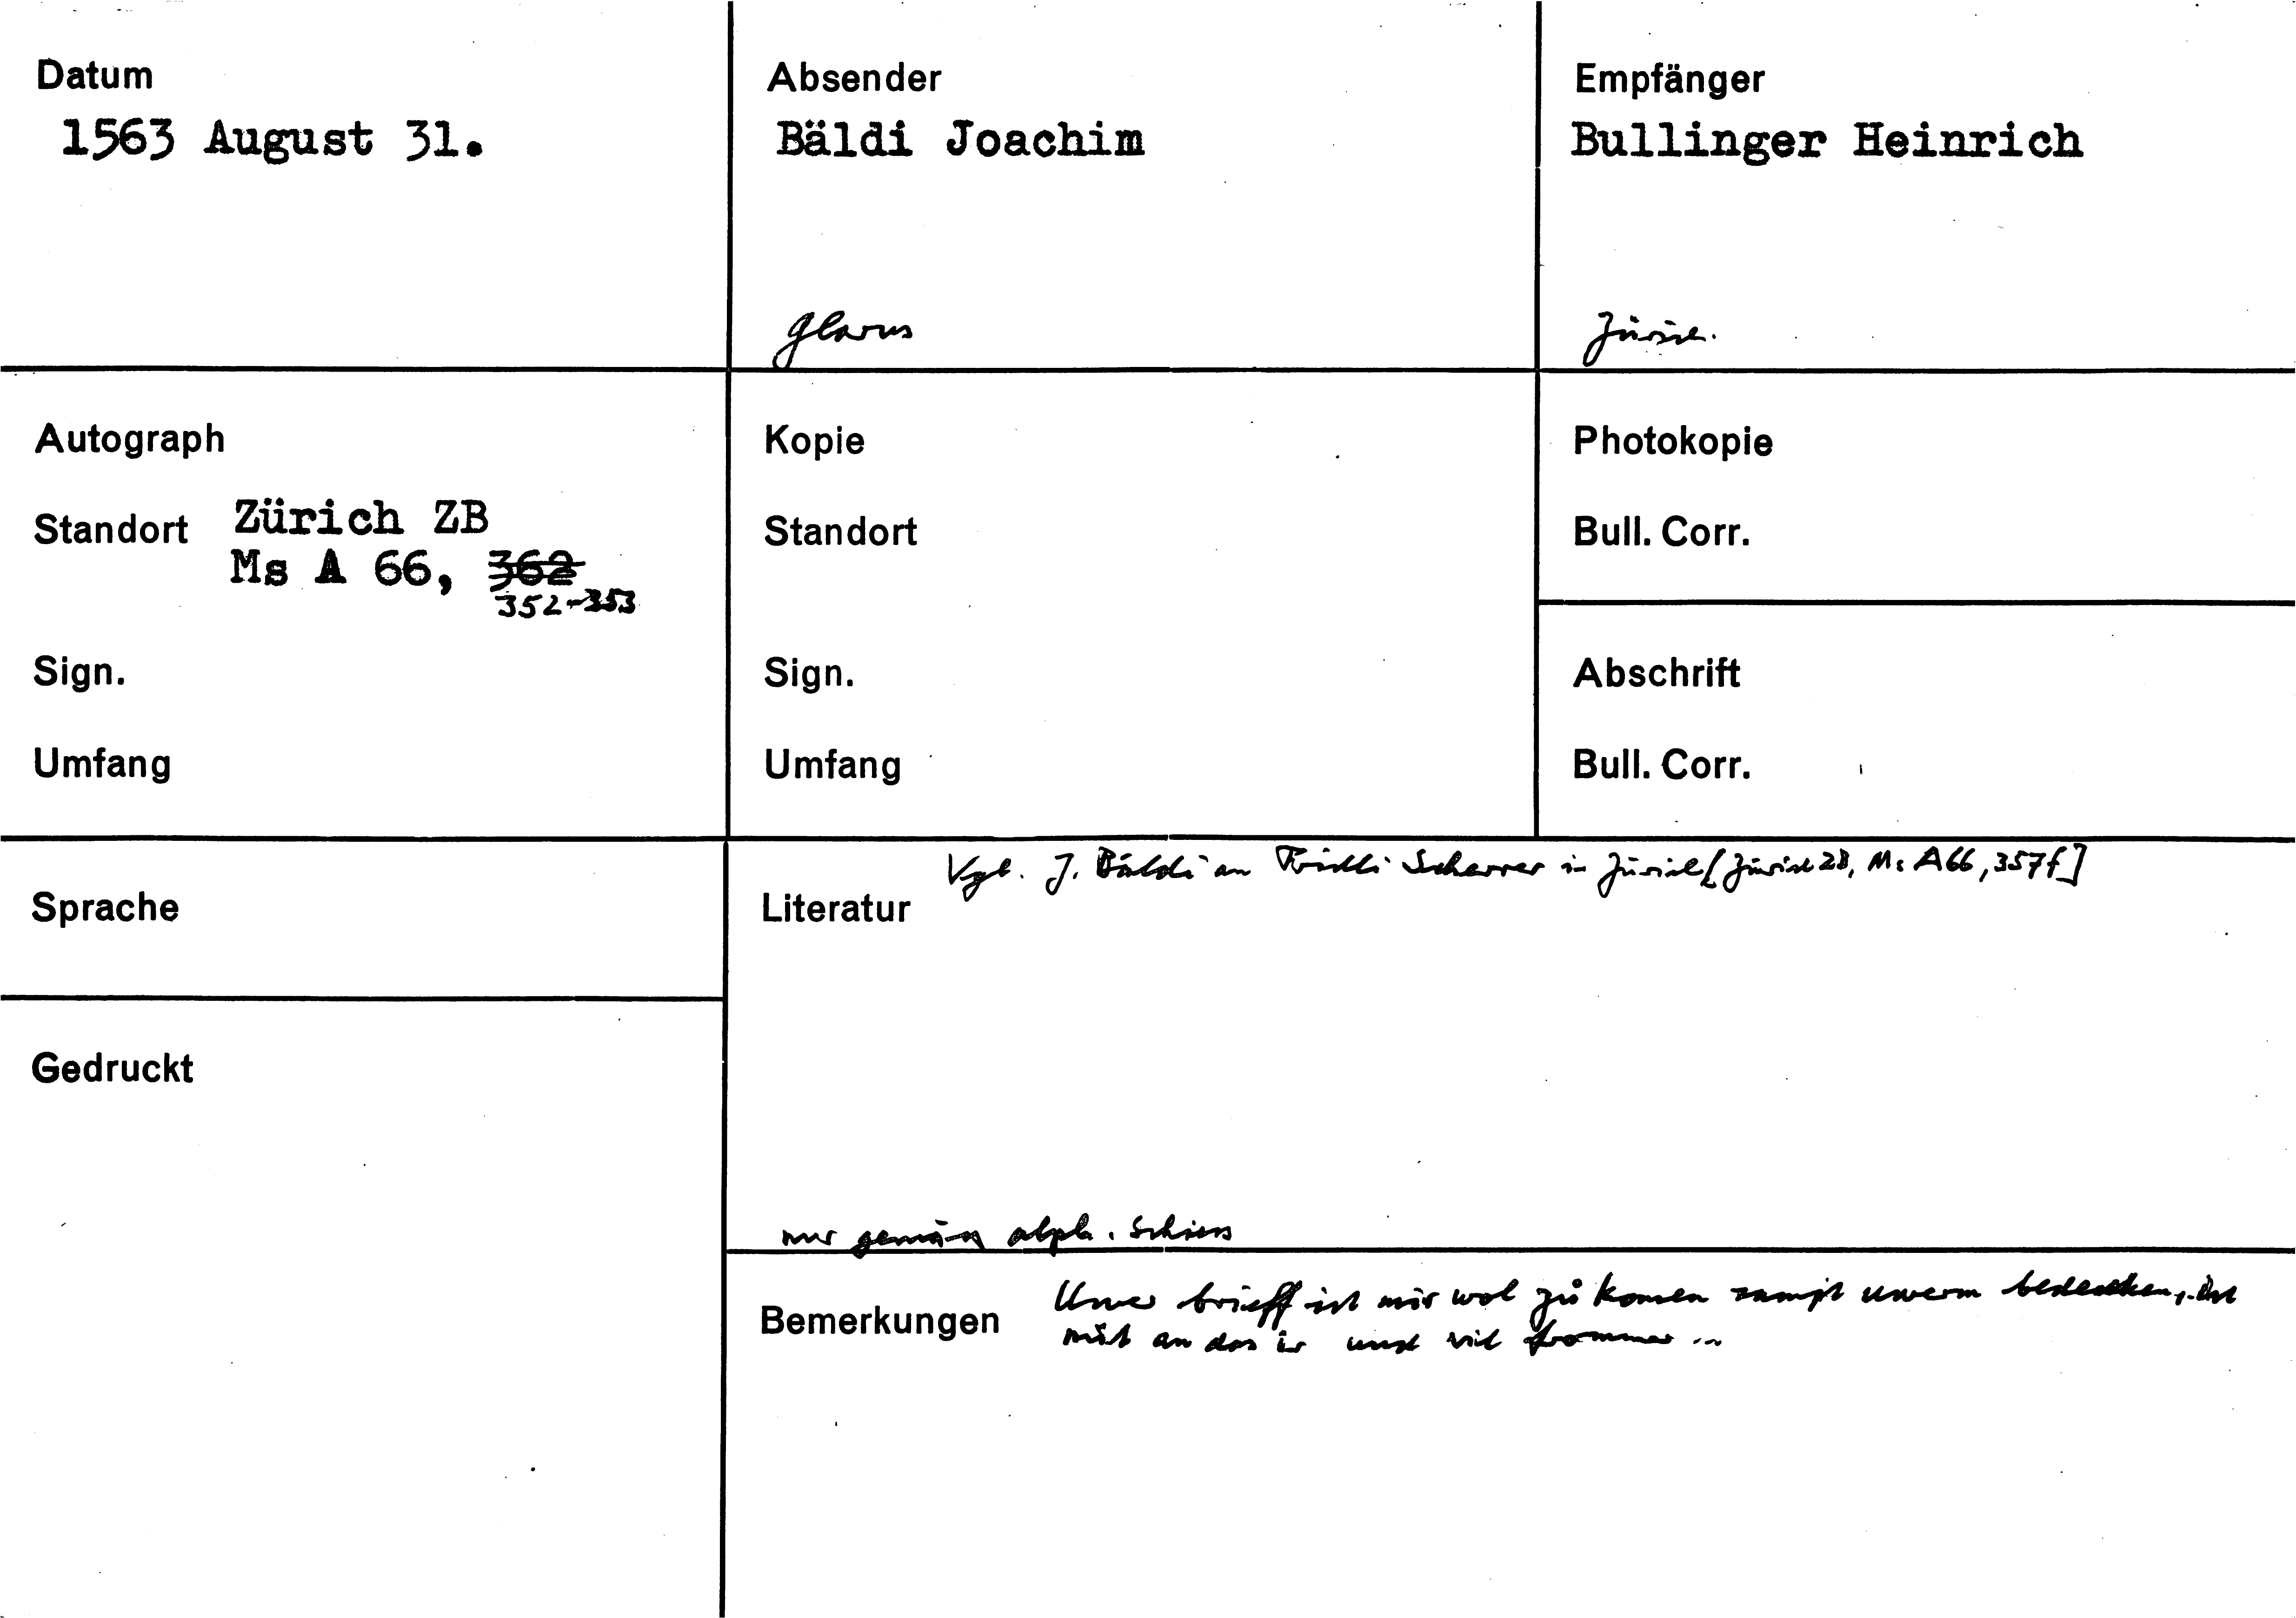 Datum
1563 August 31.
Absender
Bäldi Joachim
Glarus
Empfänger
Bullinger Heinrich
Zürich.
Autograph
Standort Zürich ZB
Ms A 66, 362
352-353
Sign.
Umfang
Kopie
Standort
Sign.
Umfang
Photokopie
Bull. Corr.
Abschrift
Bull. Corr.
Sprache
Gedruckt
Vgl. J. Bäldi an Fridli Scherrer in Zürich [Zürich ZB, Ms A 66, 357f]
Literatur
nur gemäss alph. Schiess
Bemerkungen
Uwer brieff ist mir wol zů komen sampt uwerm bedencken, ist
nüt an das ir unss vil frommer ...